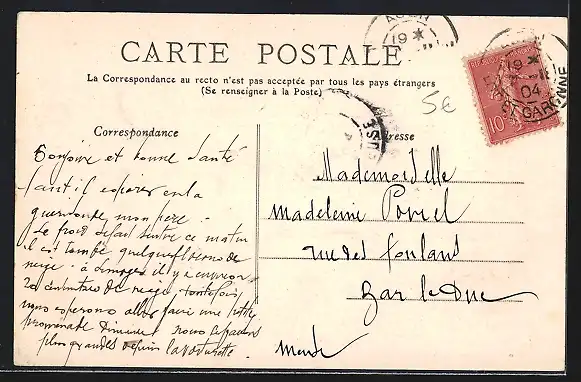 CARTE POSTALE
La Correspondance au recto n'est pas acceptée par tous les pays étrangers
(Se renseigner à la Poste)
Correspondance
Adresse
5€
19
19
04
GARONNE
10
Bonjour et bonne Santé
faut il esperer en la
mon pere
Le froid se fait sentir ce matin
il est tombé quelques flocons de
neige. à Limoges il y a environ
20 centimetres de neige toutefois
nous esperons aller faire une petite
promenade
plus grandes depuis la voiturette
Mademoiselle
Madeleine
rue des foulans
Bar le Duc
Meuse